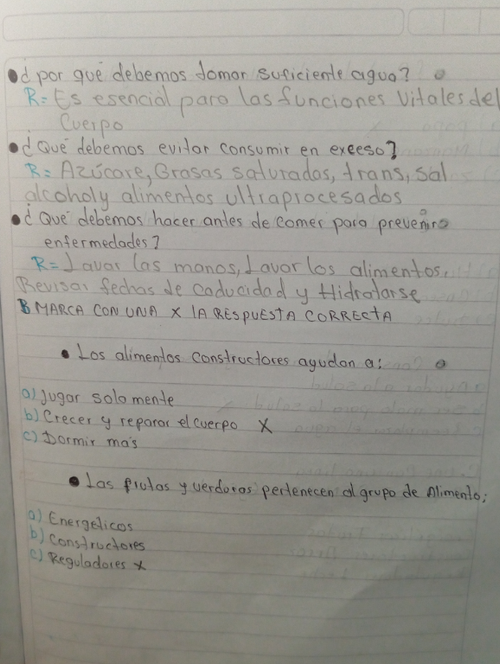 ●¿por qué debemos tomar suficiente agua?
R= Es esencial para las funciones vitales del
Cuerpo
●¿Qué debemos evitar consumir en exceso?
R= Azúcare, Grasas saturadas, trans, sal
alcohol y alimentos ultraprocesados
●¿Qué debemos hacer antes de comer para prevenir
enfermedades?
R= Lavar las manos, Lavar los alimentos.
Revisar fechas de caducidad y Hidratarse
B MARCA CON UNA X lA RESPUESTA CORRECTA
● Los alimentos constructores ayudan a:
a) Jugar solo mente
b) Crecer y reparar el cuerpo X
c) Dormir más
● Las frutas y verduras pertenecen al grupo de Alimento;
a) Energéticos
b) Constructores
c) Reguladores x